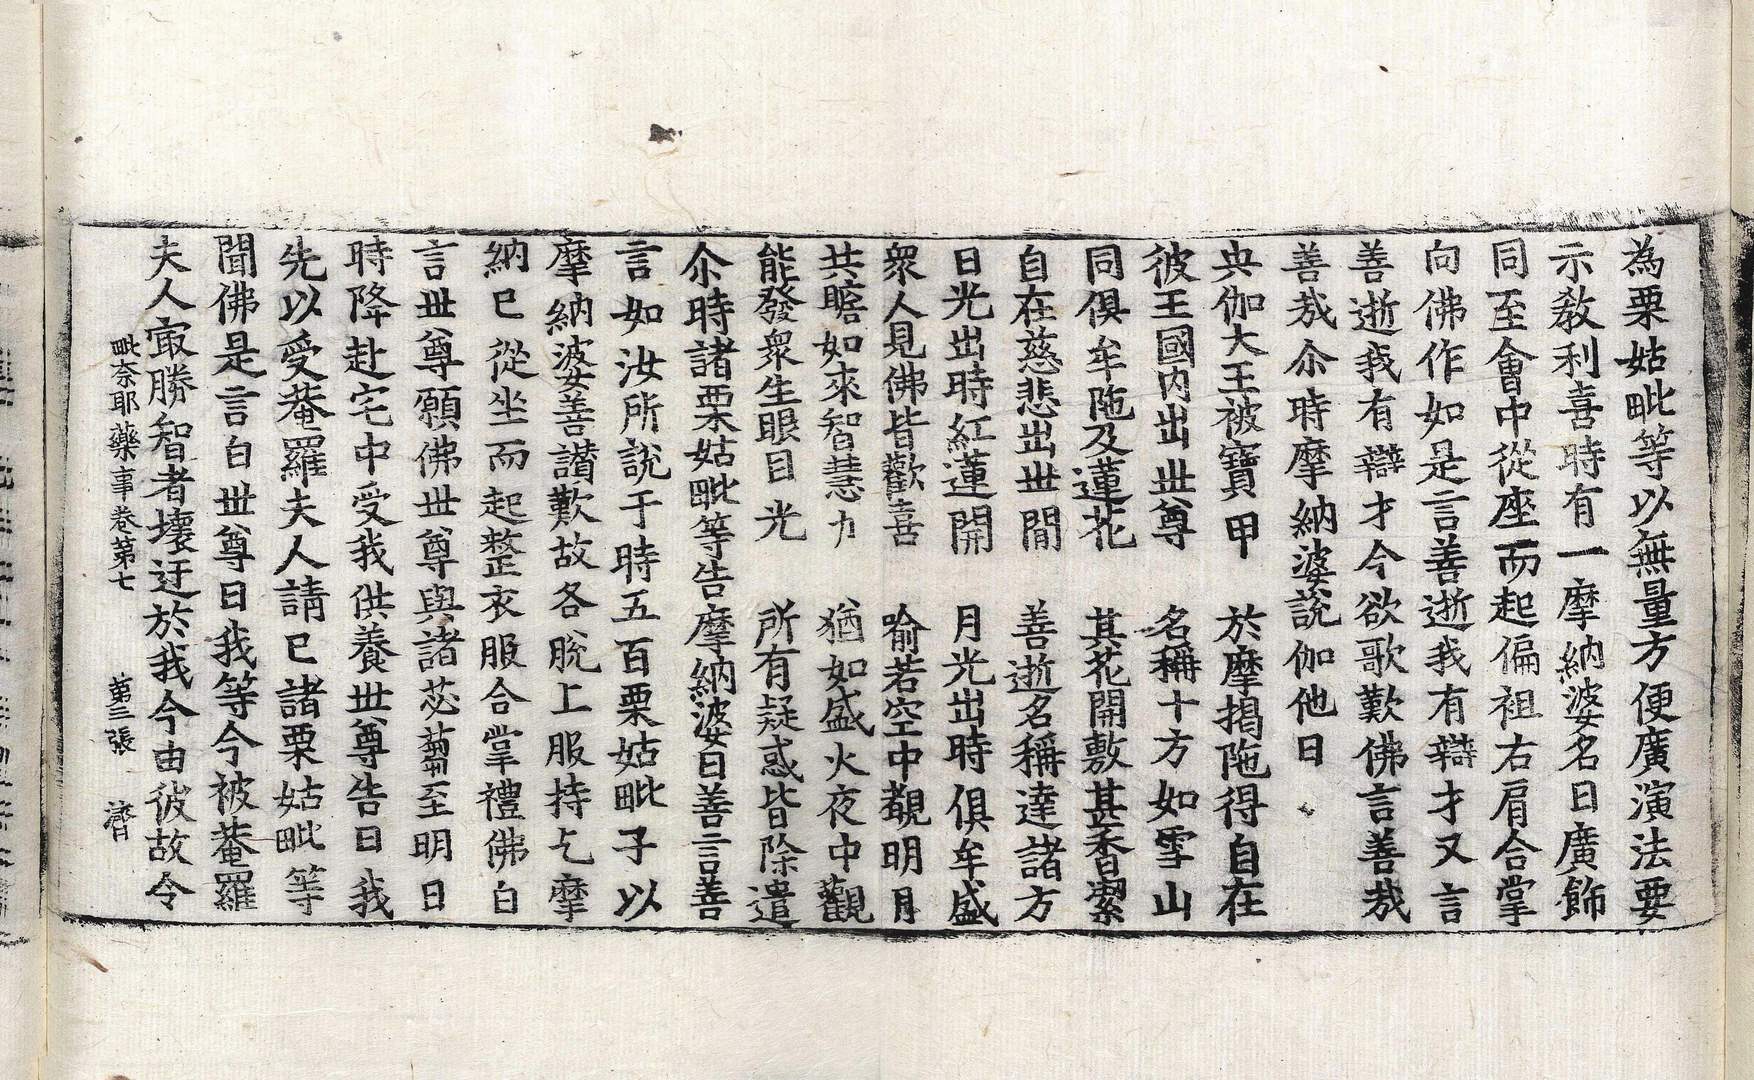 為栗姑毗等以無量方便廣演法要
示教利喜時有一摩納婆名曰廣飾
同至會中從座而起偏袒右肩合掌
向佛作如是言善逝我有辯才又言
善逝我有辯才今欲歌歎佛言善哉
善哉尒時摩納婆說伽他曰
央伽大王被寶甲　於摩揭陁得自在
彼王國內出世尊　名稱十方如雪山
同俱牟陁及蓮花　其花開敷甚香潔
自在慈悲出世間　善逝名稱達諸方
日光出時紅蓮開　月光出時俱牟盛
衆人見佛皆歡喜　喻若空中覩明月
共瞻如來智慧力　猶如盛火夜中觀
能發衆生眼目光　所有疑惑皆除遣
尒時諸栗姑毗等告摩納婆曰善言善
言如汝所說于時五百栗姑毗子以
摩納婆善讃歎故各脫上服持与摩
納已從坐而起整衣服合掌禮佛白
言世尊願佛世尊與諸苾蒭至明日
時降赴宅中受我供養世尊告曰我
先以受菴羅夫人請已諸栗姑毗等
聞佛是言白世尊曰我等今被菴羅
夫人㝡勝智者壞迂於我今由彼故令
毗奈耶藥事卷第七　第三張　濟